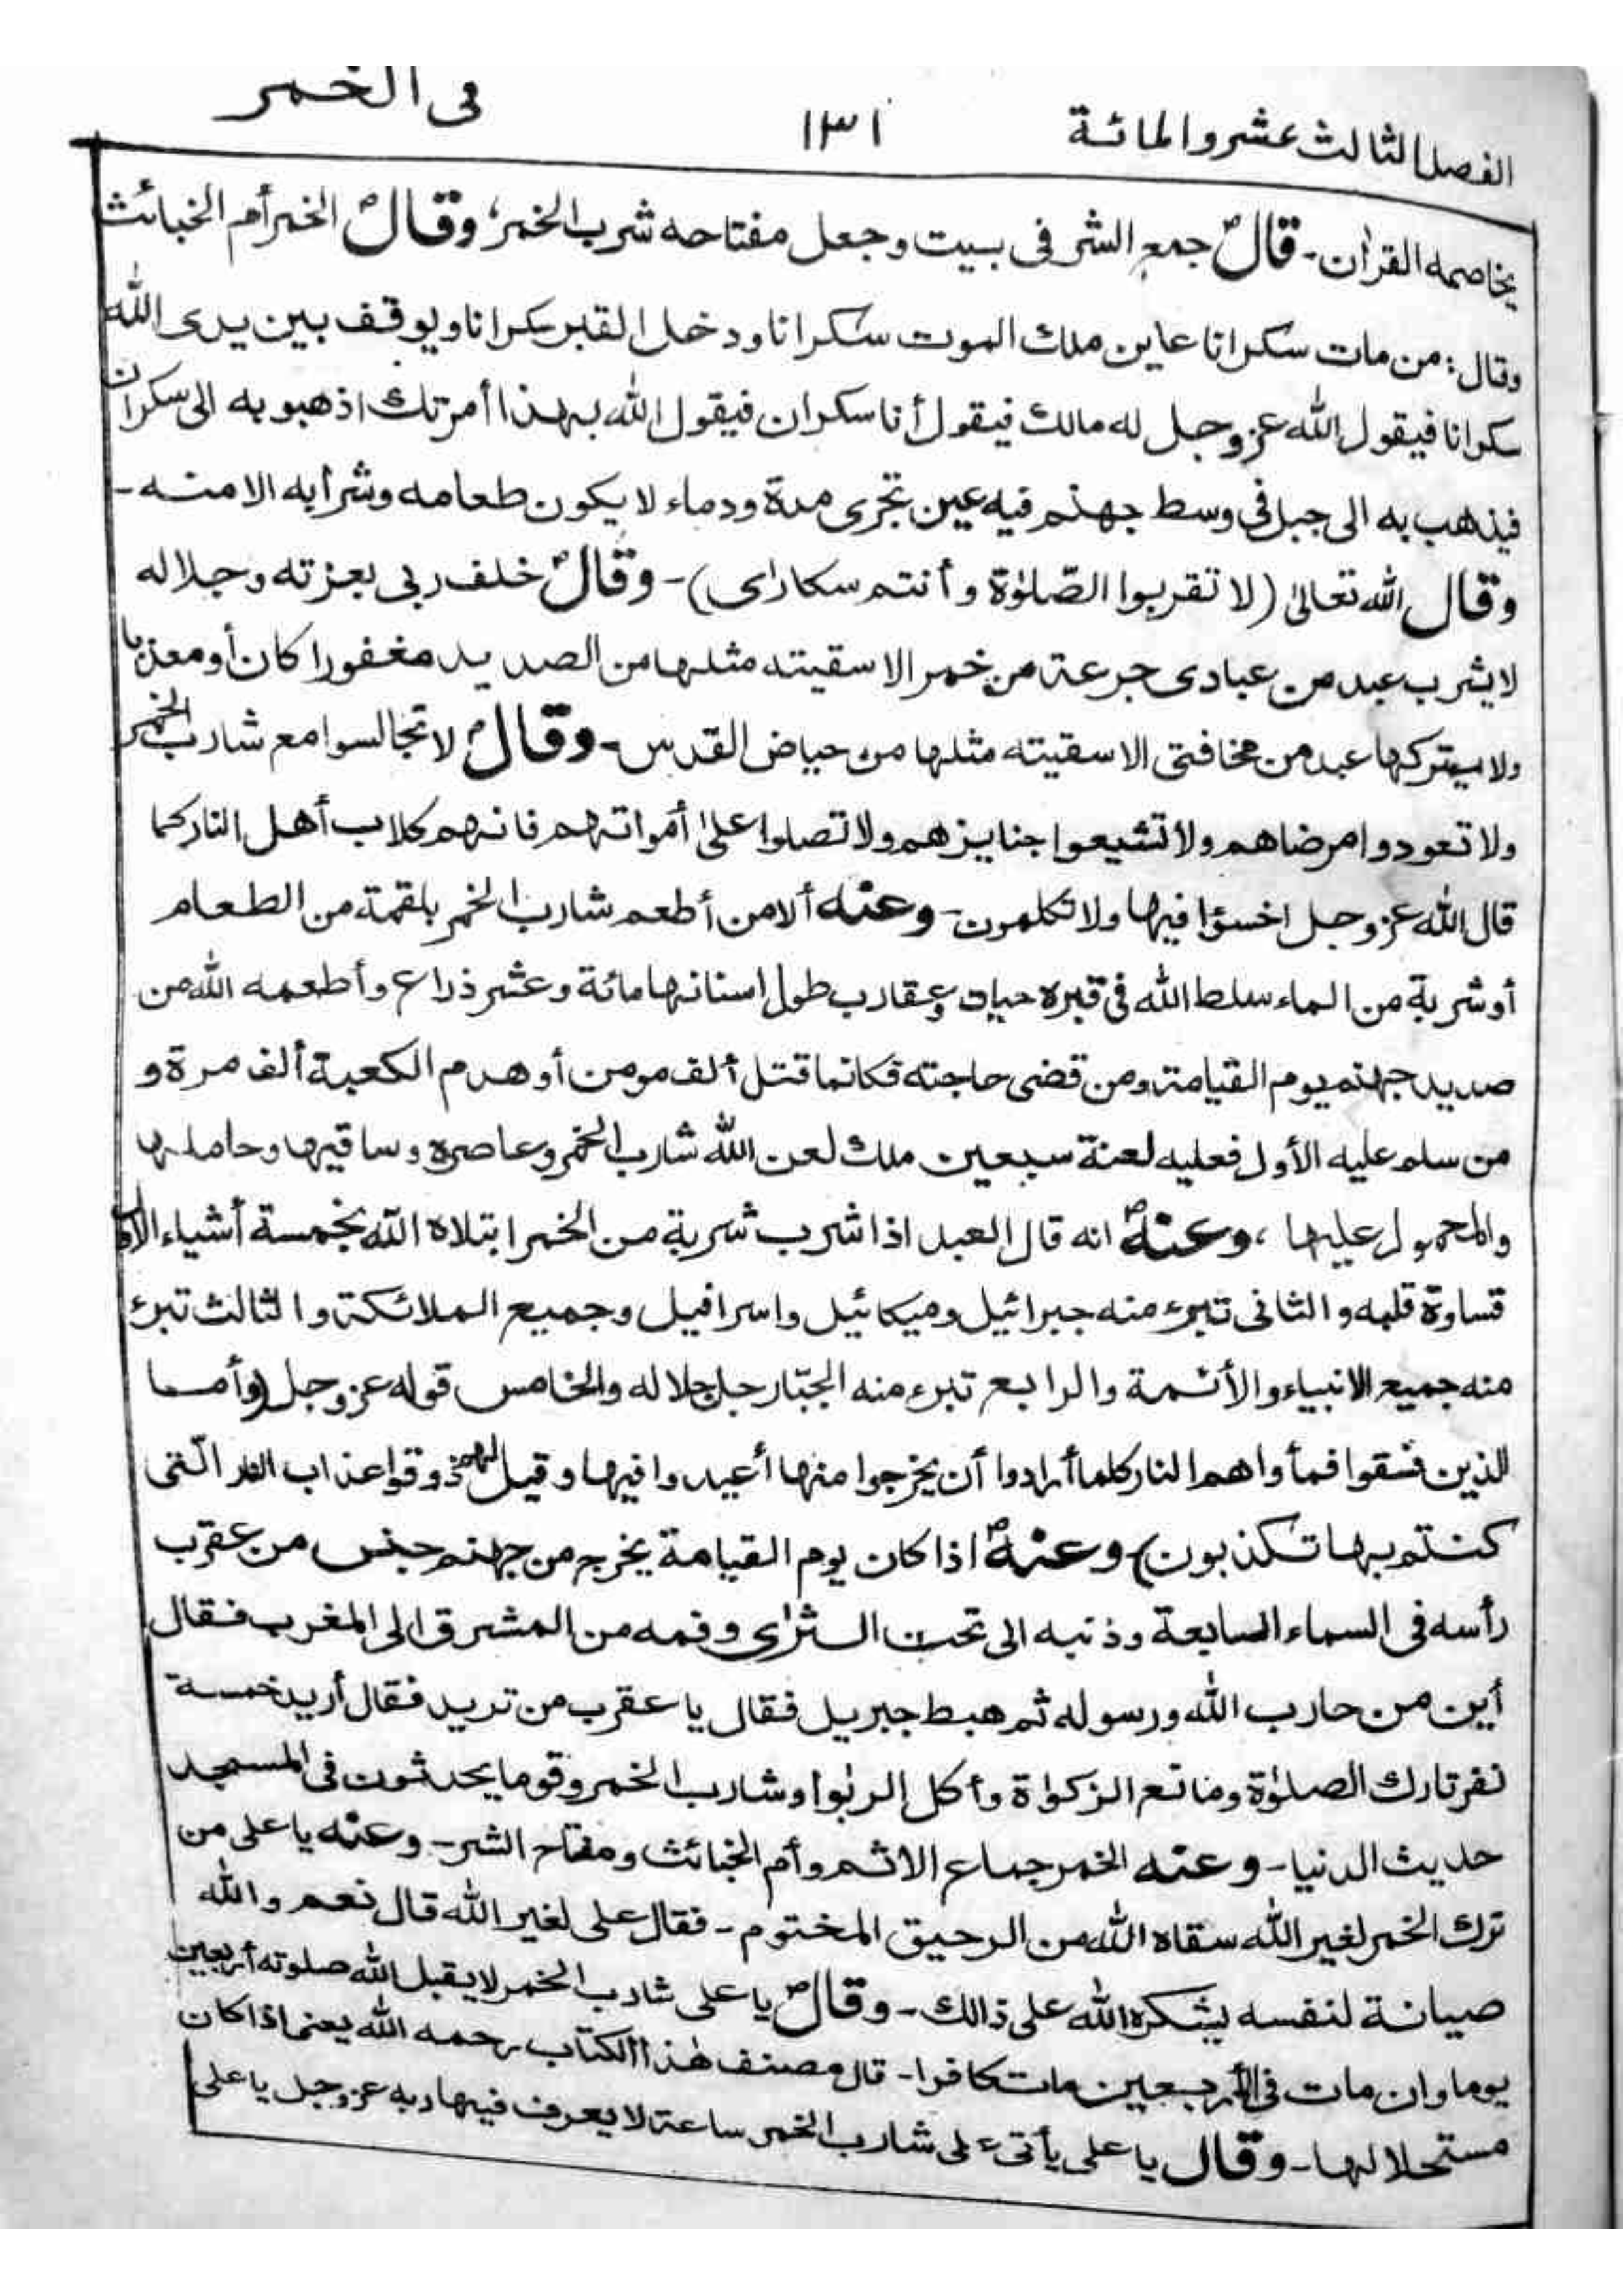 الفصل الثالث عشر والمائة ١٣١ فى الخمر
يخاصمه القرأن - قالؐ جمع الشر فى بيت وجعل مفتاحه شرب الخمر، وقالؐ الخمر أم الخبائث
وقال: من مات سكرانا عاين ملك الموت سكرانا ودخل القبر سكرانا ويوقف بين يدى الله
سكرانا فيقول الله عز وجل له مالك فيقول أنا سكران فيقول الله بهذا أمرتك اذهبو به الى سكران
فيذهب به الى جبل فى وسط جهنم فيه عين تجرى مدة ودماء لا يكون طعامه وشرابه الا منه -
وقال الله تعالىٰ (لا تقربوا الصّلوٰة وأنتم سكارٰى) - وقالؐ خلف ربى بعزته وجلاله
لا يشرب عبد من عبادى جرعة من خمر الا سقيته مثلها من الصديد مغفورا كان أو معذبا
ولا يتركها عبد من مخافتى الا سقيته مثلها من حياض القدس - وقالؐ لا تجالسوا مع شارب الخمر
ولا تعودوا مرضاهم ولا تشيعوا جنايزهم ولا تصلوا علىٰ أمواتهم فانهم كلاب أهل النار كما
قال الله عز وجل اخسؤا فيها ولا تكلمون - وعنه ألا من أطعم شارب الخمر بلقمة من الطعام
أو شربة من الماء سلط الله فى قبره حيات وعقارب طول اسنانها مائة وعشر ذراع وأطعمه الله من
صديد جهنم يوم القيامة ومن قضى حاجته فكانما قتل ألف مومن أو هدم الكعبة ألف مرة و
من سلم عليه الأول فعليه لعنة سبعين ملك لعن الله شارب الخمر وعاصره وساقيها وحاملها
والمحمول عليها، وعنهؐ انه قال العبد اذا شرب شربة من الخمر ابتلاه الله بخمسة أشياء الأول
قساوة قلبه والثانى تبرء منه جبرائيل وميكائيل واسرافيل وجميع الملائكة والثالث تبرء
منه جميع الانبياء والأئمة والرابع تبرء منه الجبّار جل جلاله والخامس قوله عز وجل (وأما
الذين فسقوا فمأواهم النار كلما أرادوا أن يخرجوا منها أعيدوا فيها وقيل لهم ذوقوا عذاب النار الّتى
كنتم بها تكذبون) وعنهؐ اذا كان يوم القيامة يخرج من جهنم جنس من عقرب
رأسه فى السماء السابعة وذنبه الى تحت الثرٰى وفمه من المشرق الى المغرب فقال
أين من حارب الله ورسوله ثم هبط جبريل فقال يا عقرب من تريد فقال أريد خمسة
نفر تارك الصلوٰة ومانع الزكوٰة وأكل الربٰوا وشارب الخمر وقوما يحدثون فى المسجد
حديث الدنيا - وعنه الخمر جماع الاثم وأم الخبائث ومفتاح الشر - وعنه يا على من
ترك الخمر لغير الله سقاه الله من الرحيق المختوم - فقال على لغير الله قال نعم والله
صيانة لنفسه يشكره الله على ذالك - وقالؐ يا على شارب الخمر لا يقبل الله صلوته أربعين
يوما وان مات فى الأربعين مات كافرا - قال مصنف هٰذا الكتاب رحمه الله يعنى اذا كان
مستحلا لها - وقال يا على يأتى على شارب الخمر ساعة لا يعرف فيها ربه عز وجل يا على